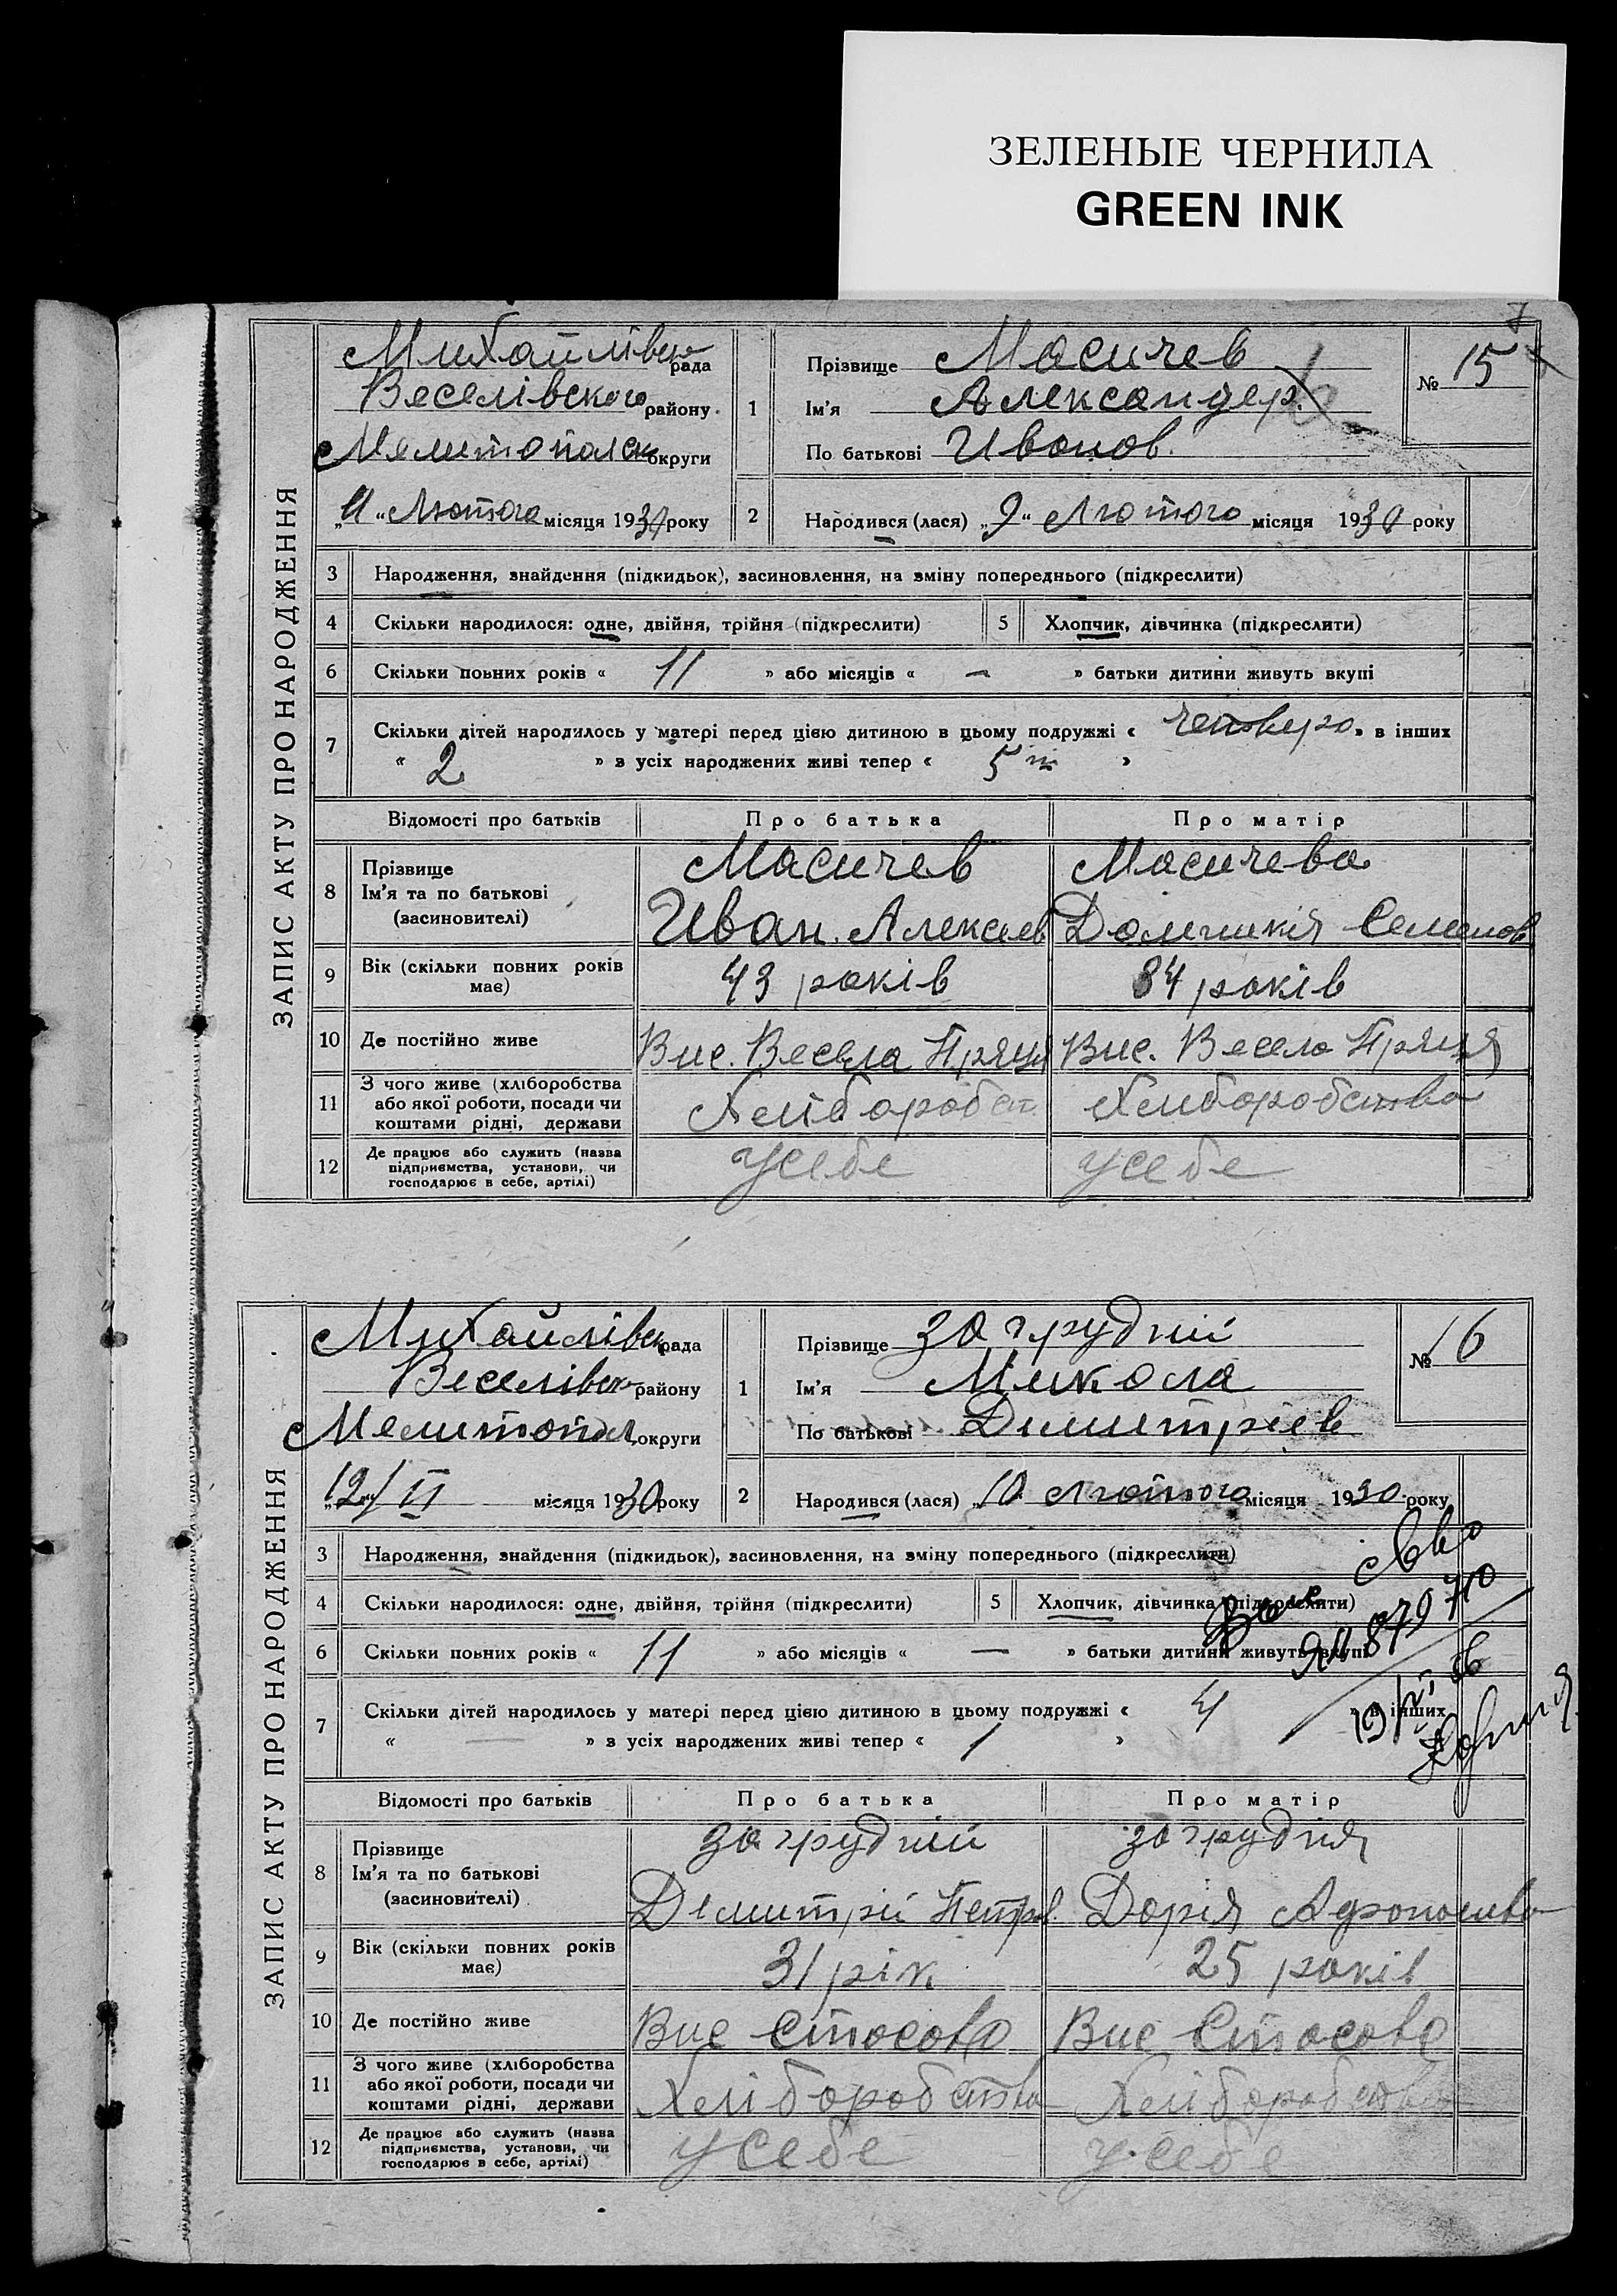 ЗЕЛЕНЫЕ ЧЕРНИЛА
GREEN INK
ЗАПИС АКТУ ПРО НАРОДЖЕННЯ
Михайлівск рада
Веселівского району
Мелитопольск округи
„11“ Лютого місяця 1930 року
1 Прізвище Масичев
Ім'я Александер
По батькові Иванов.
№ 15
2 Народився (лася) „9“ Лютого місяця 1930 року
3 Народження, знайдення (підкидьок), засиновлення, на зміну попереднього (підкреслити)
4 Скільки народилося: одне, двійня, трійня (підкреслити) 5 Хлопчик, дівчинка (підкреслити)
6 Скільки повних років « 11 » або місяців « — » батьки дитини живуть вкупі
7 Скільки дітей народилось у матері перед цією дитиною в цьому подружжі « четверо » в інших
« 2 » в усіх народжених живі тепер « 5 »
Відомості про батьків Про батька Про матір
8 Прізвище
Ім'я та по батькові
(засиновителі)
Масичев Масичева
Иван. Алексеев Домникія Семенов
9 Вік (скільки повних років має) 43 років 34 років
10 Де постійно живе Вис. Весела Вис. Весела
11 З чого живе (хліборобства
або якої роботи, посади чи
коштами рідні, держави
Хліборобст. Хліборобства
12 Де працює або служить (назва
підприємства, установи, чи
господарює в себе, артілі)
у себе у себе
ЗАПИС АКТУ ПРО НАРОДЖЕННЯ
Михайлівск рада
Веселівск району
Мелитопол округи
„12“ II місяця 1930 року
1 Прізвище Загрудній
Ім'я Микола
По батькові Димитріев
№ 16
2 Народився (лася) „10 Лютого місяця 1930 року
3 Народження, знайдення (підкидьок), засиновлення, на зміну попереднього (підкреслити)
4 Скільки народилося: одне, двійня, трійня (підкреслити) 5 Хлопчик, дівчинка (підкреслити)
6 Скільки повних років « 11 » або місяців « — » батьки дитини живуть вкупі
7 Скільки дітей народилось у матері перед цією дитиною в цьому подружжі « 4 » в інших
« — » в усіх народжених живі тепер « 1 »
Відомості про батьків Про батька Про матір
8 Прізвище
Ім'я та по батькові
(засиновителі)
Загрудній Загрудня
Димитрій Петров. Дарія
9 Вік (скільки повних років має) 31 рік 25 років
10 Де постійно живе Вис Стасово Вис Стасово
11 З чого живе (хліборобства
або якої роботи, посади чи
коштами рідні, держави
Хліборобства Хліборобства
12 Де працює або служить (назва
підприємства, установи, чи
господарює в себе, артілі)
у себе у себе